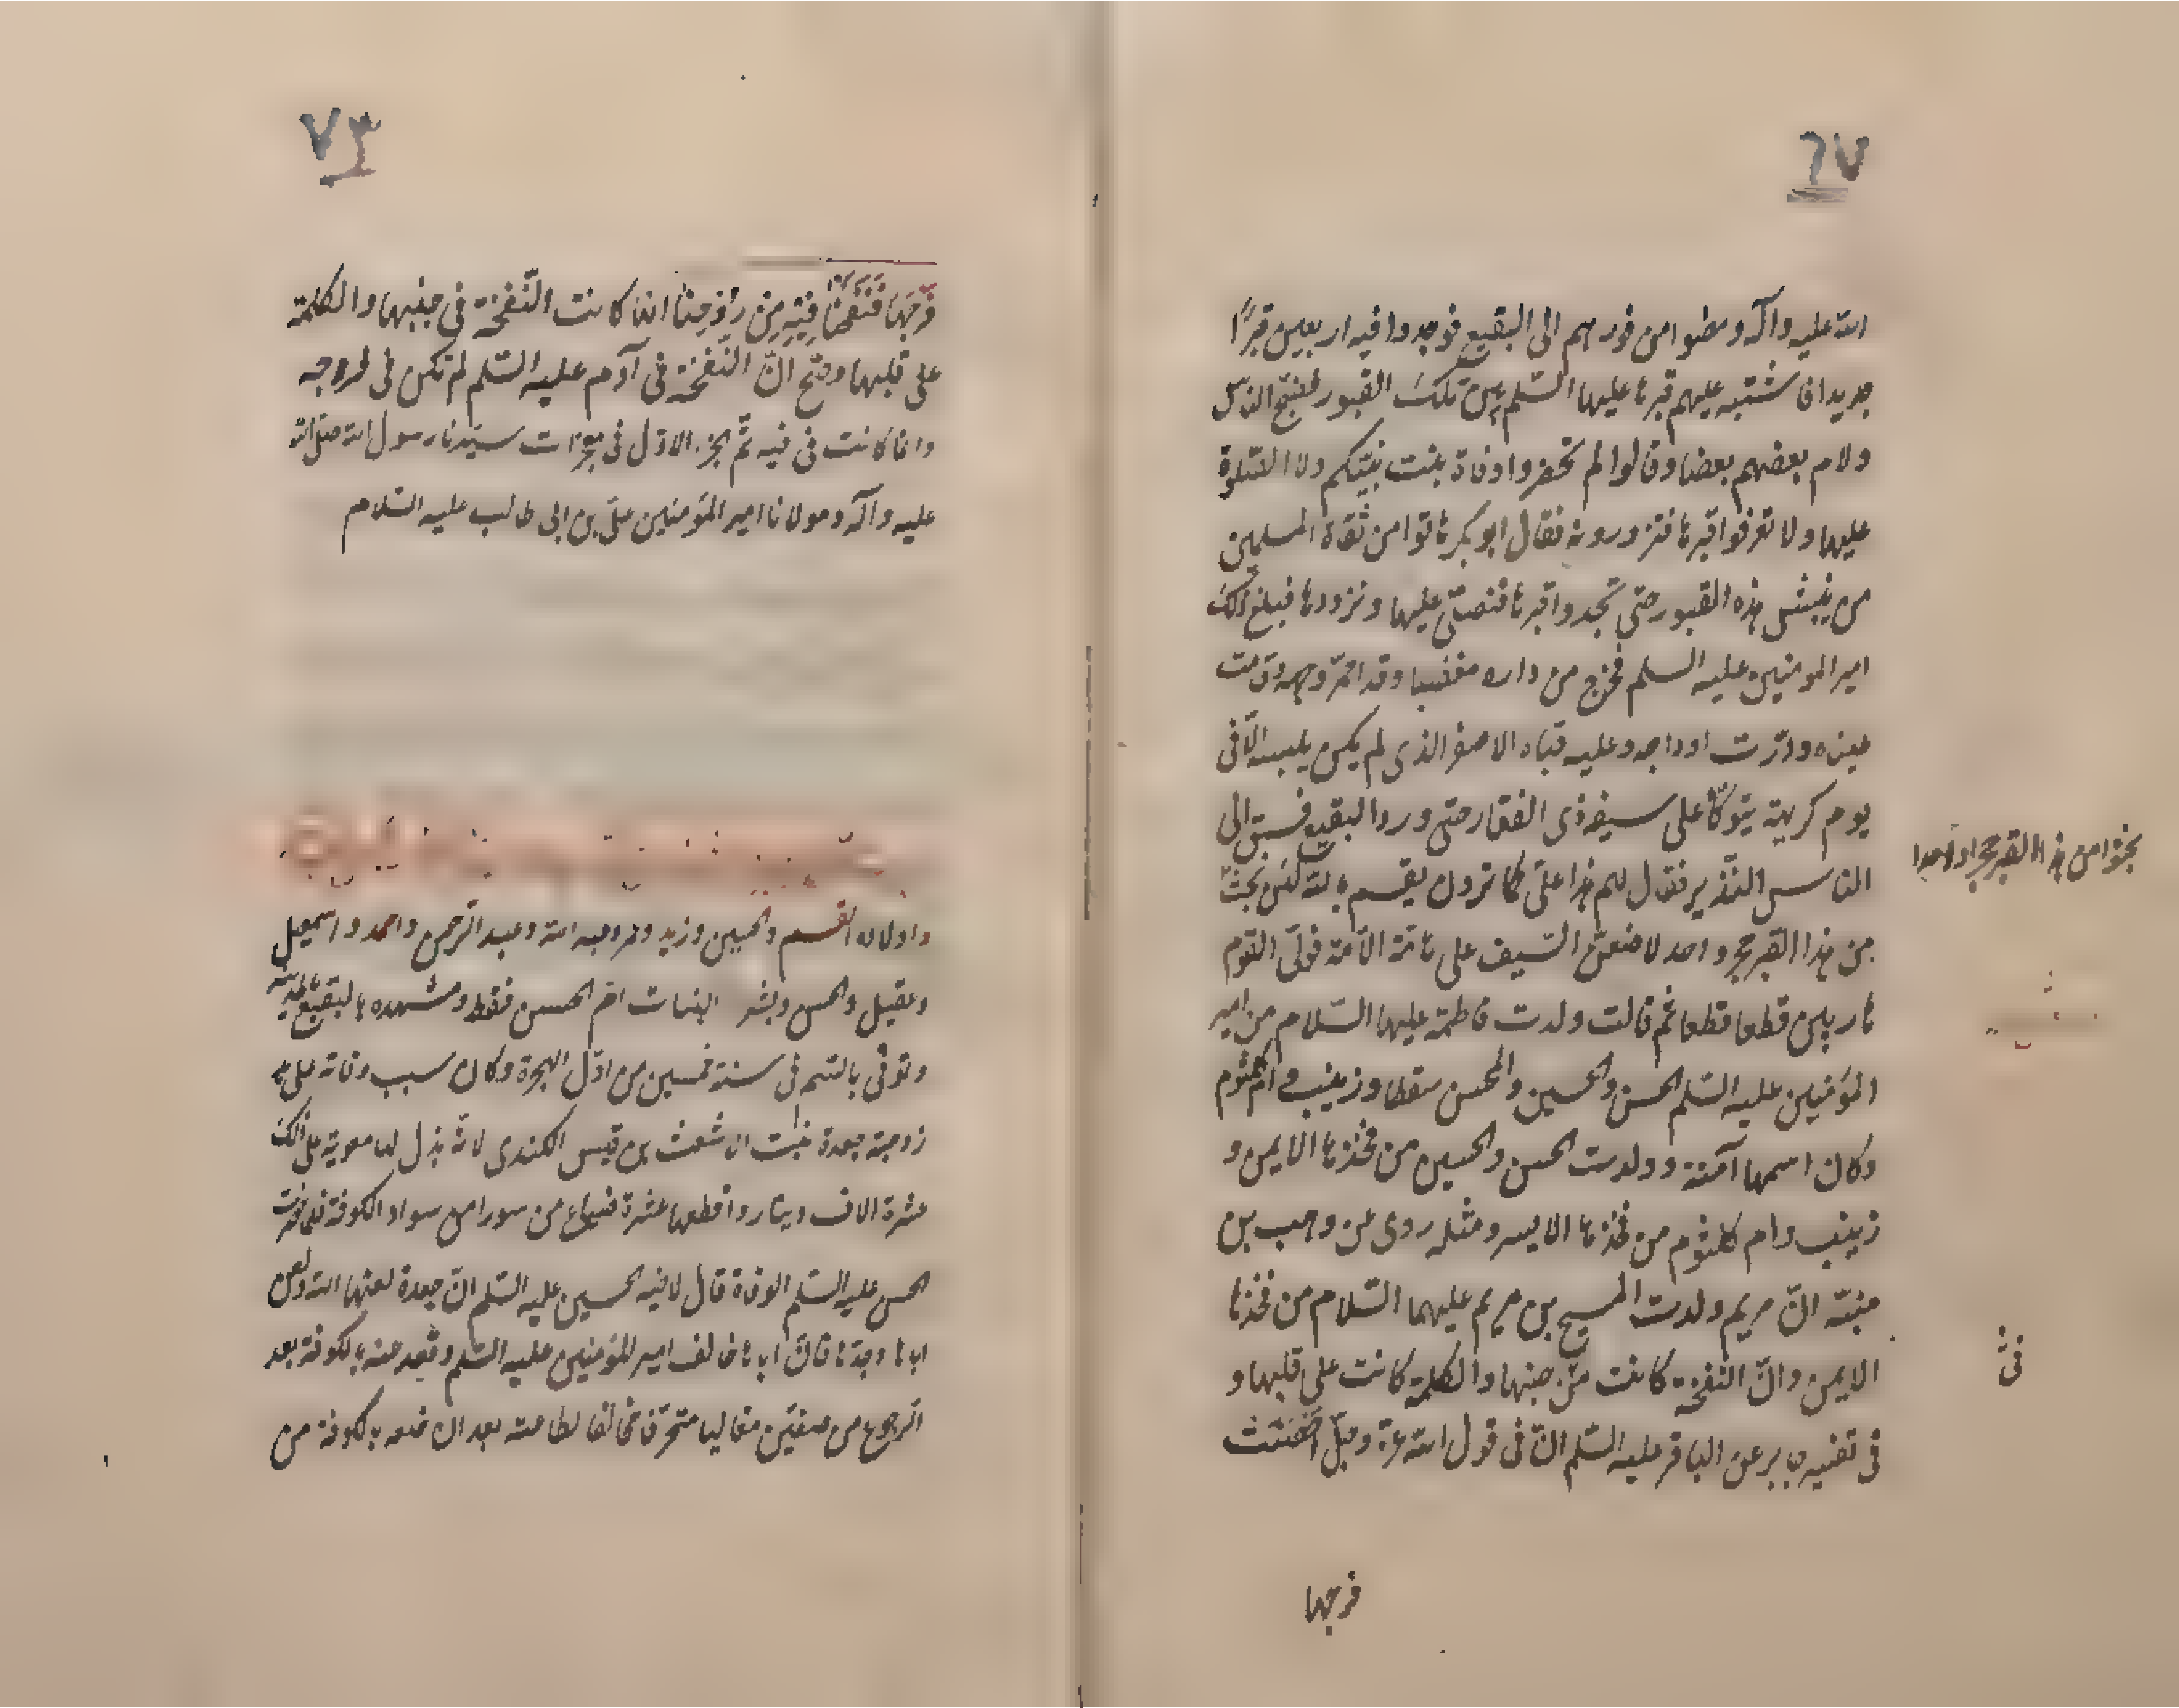 ٦٧
الله عليه وآله ومضوا من فورهم الى البقيع فوجدوا فيه اربعين قبرًا
جديدا فاشتبه عليهم قبرها عليها السّلم بين تلك القبور فضجّ الناس
ولام بعضهم بعضا وقالوا لم تحضروا وفاة بنت نبيّكم ولا الصّلوة
عليها ولا تعرفوا قبرها فتزورونه فقال ابو بكر هاتوا من ثقاة المسلمين
من ينبش هذه القبور حتى تجدوا قبرها فنصلّى عليها ونزورها فبلغ ذلك
امير المومنين عليه السلم فخرج من داره مغضبا وقد احمرّ وجهه وقامت
عينه ودرّت اوداجه وعليه قباه الاصفر الذى لم يكن يلبسه الّا فى
يوم كريهة يتوكّأ على سيفه ذى الفقار حتى ورد البقيع فسبق الى
الناس النّذير فقال لهم هذا علىّ كما ترون يقسم بالله لئن بحث
من هذا القبر حجر واحد لاضعنّ السّيف على هامة الامة فولّى القوم
هاربين قطعا قطعا ثم قالت ولدت فاطمة عليها السّلام من امير
المؤمنين عليه السّلم الحسن والحسين والمحسن سقطا وزينب و امّ كلثوم
وكان اسمها آمنة وولدت الحسن والحسين من فخذها الايمن و
زينب وام كلثوم من فخذها الايسر ومثله روى عن وهب بن
منبّه انّ مريم ولدت المسيح بن مريم عليهما السّلام من فخذها
الايمن وانّ النّفخة كانت من جنبها والكلمة كانت على قلبها و
فى تفسير جابر عن الباقر عليه السّلم انّ فى قول الله عزّ وجلّ احصنت
فرجها
بحثوا من هذا القبر حجرا واحدا
فى
٧٣
فَرْجَهَا فَنَفَخْنَا فِيهِ مِن رُوحِنَا انما كانت النّفخة فى جنبها والكلمة
على قلبها وصحّ انّ النّفخة فى آدم عليه السّلم لم تكن فى فروجه
وانما كانت فى فيه ثمّ الجزء الاوّل فى معجزات سيّدنا رسول الله صلى الله
عليه وآله ومولانا امير المؤمنين علىّ بن ابى طالب عليه السّلام
واولاده القسم والحسين وزيد وعمر وعبد الله وعبد الرّحمن واحمد واسمعيل
وعقيل والحسن وبشر البنات امّ الحسن فقط ومشهده بالبقيع بالمدينة
وتوفّى بالسّم فى سنة خمسين من اوّل الهجرة وكان سبب وفاته على يد
زوجته جعدة بنت الاشعث بن قيس الكندى لانّه بذل لها معوية على ذلك
عشرة الاف دينار واقطعها عشرة ضياع من سورا من سواد الكوفة فلما حضرت
الحسن عليه السّلم الوفاة قال لاخيه الحسين عليه السّلم انّ جعدة لعنها الله ولعن
اباها وجدّها فانّ اباها خالف امير المؤمنين عليه السّلم وقعد عنه بالكوفة بعد
الرّجوع من صفّين مغاليا متحرّفا مخالفا لطاعته بعد ان خلعه بالكوفة من